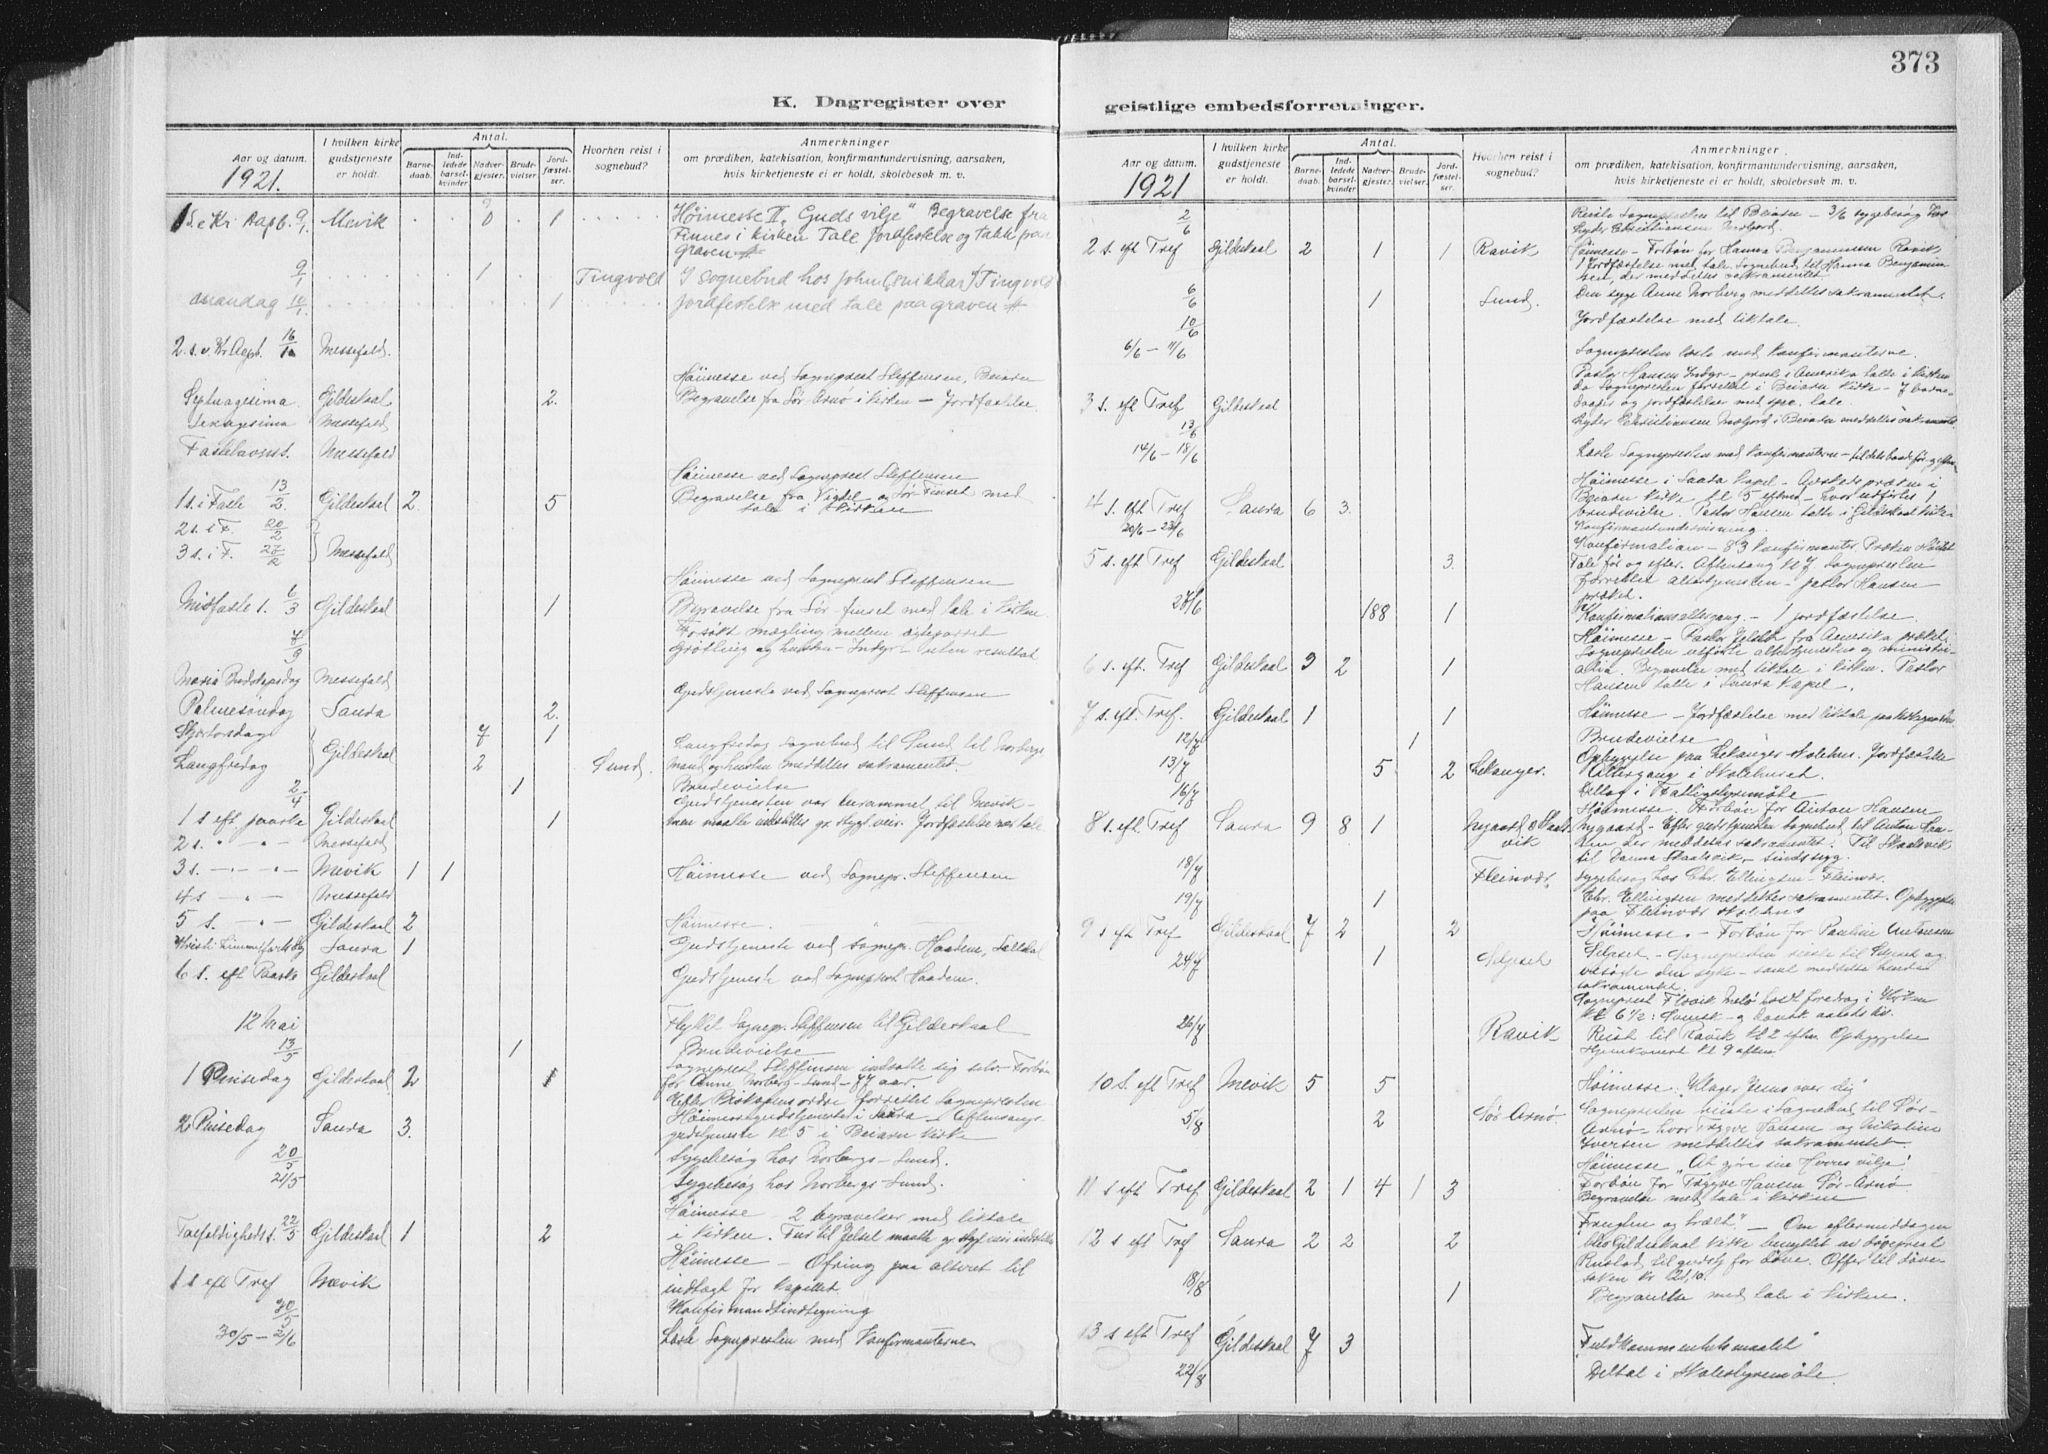 373
K. Dagregister over
geistlige embedsforretninger.
Aar og datum.
1921.
I hvilken kirke gudstjeneste er holdt.
Antal.
Barnedaab.
Indledede barselkvinder
Nadvergjester.
Brudevielser
Jordfæstelser.
Hvorhen reist i sognebud?
Anmerkninger
om prædiken, katekisation, konfirmantundervisning, aarsaken, hvis kirketjeneste ei er holdt, skolebesøk m. v.
1 S. e Kr Aapb. 9/1 Mevik 0 1 Høimesse II „Guds vilje" Begravelse fra
Finnes i kirken Tale Jordfestelse og takk paa
graven
9/1 1 Tingvold I sognebud hos John (snikkar) Tingvold
mandag 10/1 1 Jordfestelse med tale paa graven
2. s. e. Kr. Aapb. 16/1 Messefald.
Høimesse ved Sogneprest Steffensen, Beiarn
Septuagesima Gildeskaal 2. Begravelse fra Sør Arnø i kirken – Jordfæstelse.
Sexagesima Messefald
Fastelavnss. Messefald
Høimesse ved Sogneprest Steffensen
1 s. i Faste 13/2 Gildeskaal 2. 5 Begravelse fra Vigdel og Sør Finset med
tale i Kirken
2 s. i F. 20/2
3 s. i F. 27/2 Messefald
Høimesse ved Sogneprest Steffensen
Midfaste s. 6/3 Gildeskaal 1 Begravelse fra Sør-finset med tale i kirken
Forsøkt mægling mellem egteparret
Grøtling og hustru – Indyr – uten resultat
Maria Budskapsdag Messefald
Gudstjeneste ved Sogneprest Steffensen
Palmesøndag Saura 2.
Skjærtorsdag 7 1
Gildeskaal
Langfredag sognebud til Sund til Norbergs
Langfredag 2 Sund. mand og hustru meddeltes sakramentet.
2/4 1 Brudevielse
Gudstjenesten var berammet til Mevik –
1 s eft. paaske Gildeskaal 1 men maatte indstilles gr. stygt veir. Jordfæstelse med tale
2 s. " – " – Messefald
3 s. – " – " – Mevik 1 1 Høimesse ved Sognepr. Steffensen
4 s – " – Messefald
5 s. – " – Gildeskaal 2 Høimesse.
Kristi Himmelfartsdag Saura 1 Gudstjeneste ved sognepr. Haadem, Saltdal
6 s. eft Paaske Gildeskaal Gudstjeneste ved Sogneprest Haadem.
12 Mai Flyttet Sognepr. Steffensen til Gildeskaal
13/5 1 Brudevielse
Sogneprest Steffensen indsatte sig selv – Forbøn
1 Pinsedag Gildeskaal 2 1 for Anne Norberg – Sund – 77 aar.
Efter Biskopens ordre forrettet Sognepresten
2 Pinsedag Saura 3. Høimessegudstjeneste i Saura – Aftensangs-
gudstjeneste kl. 5 i Beiarn Kirke
20/5 Sygebesøg hos Norbergs – Sund.
21/5 Sygebesøg hos Norbergs Sund.
Høimesse – 2 begravelser med liktale
Trefoldighedss. 22/5 Gildeskaal 1 2 i Kirken. Tur til Jelset maatte gr stygt veir indstilles
Høimesse – Ofring paa alteret til
1 s eft Tref Mevik indtægt for Kapellet.
30/5 Konfirmandindtegning
30/5 – 2/6 Læste Sognepresten med Konfirmanterne
Aar og datum.
1921
I hvilken kirke gudstjeneste er holdt.
Antal.
Barnedaab.
Indledede barselkvinder
Nadvergjester.
Brudevielser.
Jordfæstelser.
Hvorhen reist i sognebud?
Anmerkninger
om prædiken, katekisation, konfirmantundervisning, aarsaken, hvis kirketjeneste ei er holdt, skolebesøk m. v.
2/6 Reiste Sognepresten til Beiarn – 3/6 sygebesøg hos
Lyder Christiansen
2 s. eft Tref Gildeskaal 2 1 1 Ravik Høimesse – Forbøn for Hanna Benjaminsen Ravik,
1 Jordfæstelse med tale. Sognebud til Hanna Benjamin
sen, der meddeltes sakramentet
6/6 1 Sund. Den syge Anne Norberg meddeltes sakramentet.
10/6 Jordfæstelse med liktale.
6/6 – 11/6 Sognepresten læste med konfirmanterne.
Pastor Hansen Indyr – prest i Amerika talte i kirken
da Sognepresten forrettet i Beiarn Kirke – 7 barne-
3 s. eft Tref Gildeskaal daaper og jordfæstelser med spec. tale.
13/6 Lyder Christiansen i Beiarn meddeltes sakramentet
14/6 – 18/6 Læste Sognepresten med Konfirmanterne – tildels baade før og efterm.
Høimesse i Saura Kapel – Aftensang præken i
4 s. eft Tref Saura 6 3. Beiarn Kirke kl. 5 efterm – hvor utførtes 1
brudevielse. Pastor Hansen talte i Gildeskaal kirke
20/6 – 23/6 Konfirmantundervisning.
Konfirmation – 83 konfirmanter. Præken holdtes
5 s. eft Tref Gildeskaal 3. Tale før og efter. Aftensang kl 7 Sognepresten
forrettet altertjenesten – pastor Hansen
præket.
27/6 188 1 Konfirmationsaltergang. – 1 jordfæstelse.
Høimesse – Pastor fra Amerika præket.
Sognepresten utførte altertjenesten og ministeri-
6 s. eft. Tref Gildeskaal 9 2 1 alia. Begravelse med liktale i kirken. Pastor
Hansen talte i Saura Kapel.
7 s. eft. Tref. Gildeskaal 1 1 Høimesse – Jordfæstelse med liktale paa kirkegaarden
12/7 1 Brudevielse
13/7 5 2 Lekanger. Opbyggelse paa Lekanger skolehus. Jordfæstelse
Altergang i Skolehuset.
16/7 Deltog i Fattigstyremøte
Høimesse. Forbøn for Anton Hansen
8 s. eft Tref Saura 9 8 1 Nygaard & Skaals- Nygaard – Efter gudstjenesten sognebud til Anton Han-
vik sen der meddeltes sakramentet. Til Skaalsvik
til Danna Skaalsvik – sindssyg.
18/7 Fleinvær Sygebesøg hos Chr. Ellingsen – Fleinvær.
19/7 1 Chr. Ellingsen meddeltes sakramentet. Opbyggelse
paa Fleinvær skolehus
9 s eft Tref Gildeskaal 7 2 2 Høimesse. – Forbøn for Pauline Antonsen
24/7 1 Selpset Selpset – Sognepresten reiste til Selpset og
besøgte den syke – samt meddelte hende
sakramentet.
Sogneprest Flovik Melø holdt foredrag i Kirken
kl 6½: Svensk – og dansk aandsliv.
26/7 Ravik Reist til Ravik kl 2 efterm. Opbyggelse
Hjemkomst kl 9 aften.
10 s. eft Tref Mevik 5 5 Høimesse: „Klager Jesus over dig"
5/8 2 Sør Arnø. Sognepresten reiste i Sognebud til Sør-
Arnø – hvor Trygve Hansen og Nikoline
Iversen meddeltes sakramentet.
Høimesse „At gjøre sin Herres vilje".
11 s eft Tref Gildeskaal 2 1 4 1 3 Forbøn for Trygve Hansen Sør-Arnø
Begravelse med tale i Kirken
„Frugten og træet" – Om eftermiddagen
12 s eft Tref Saura 2 2 2 blev Gildeskaal Kirke benyttet av døveprest
Rustad til gudstj for døve. Offer til døve-
saken kr 21,10.
18/8 1 Begravelse med tale i Kirken.
13 s eft Tref Gildeskaal 7 3 „Fuldkommenhetsmaalet"
22/8 Deltat i Skolestyremøte.